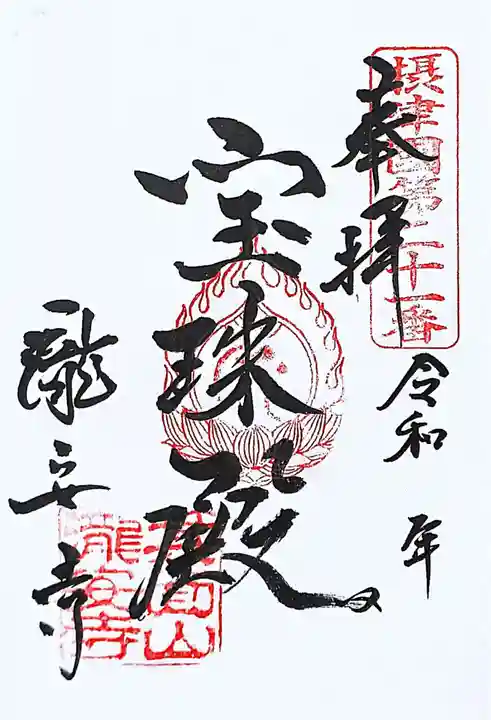 摂津国第二十一番
奉拝
令和　年
宝珠殿
瀧安寺
箕面山
瀧安寺